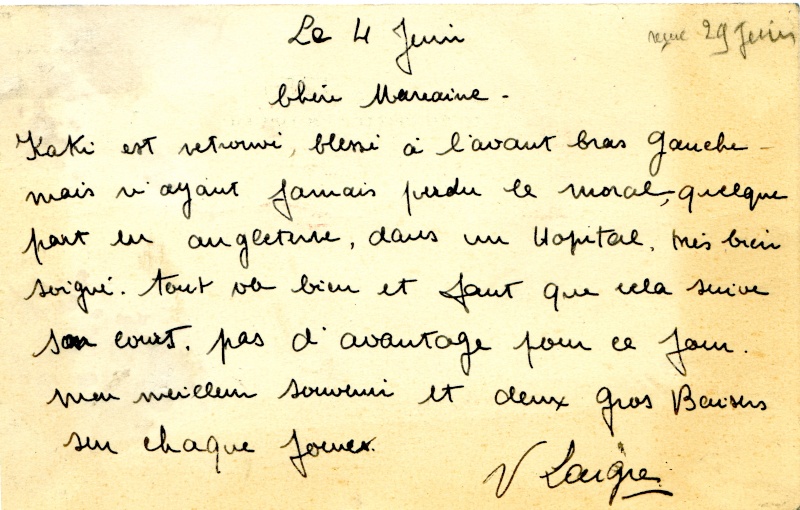 Le 4 Juin
reçue 29 Juin
Chère Marraine -
Kaki est retrouvé, blessé à l'avant bras gauche -
mais n'ayant jamais perdu le moral, quelque
part en angleterre, dans un Hopital, très bien
soigné. tout va bien et faut que cela suive
son court. pas d'avantage pour ce jour.
mon meilleur souvenir et deux gros Baisers
sur chaque joues.
V Laigre